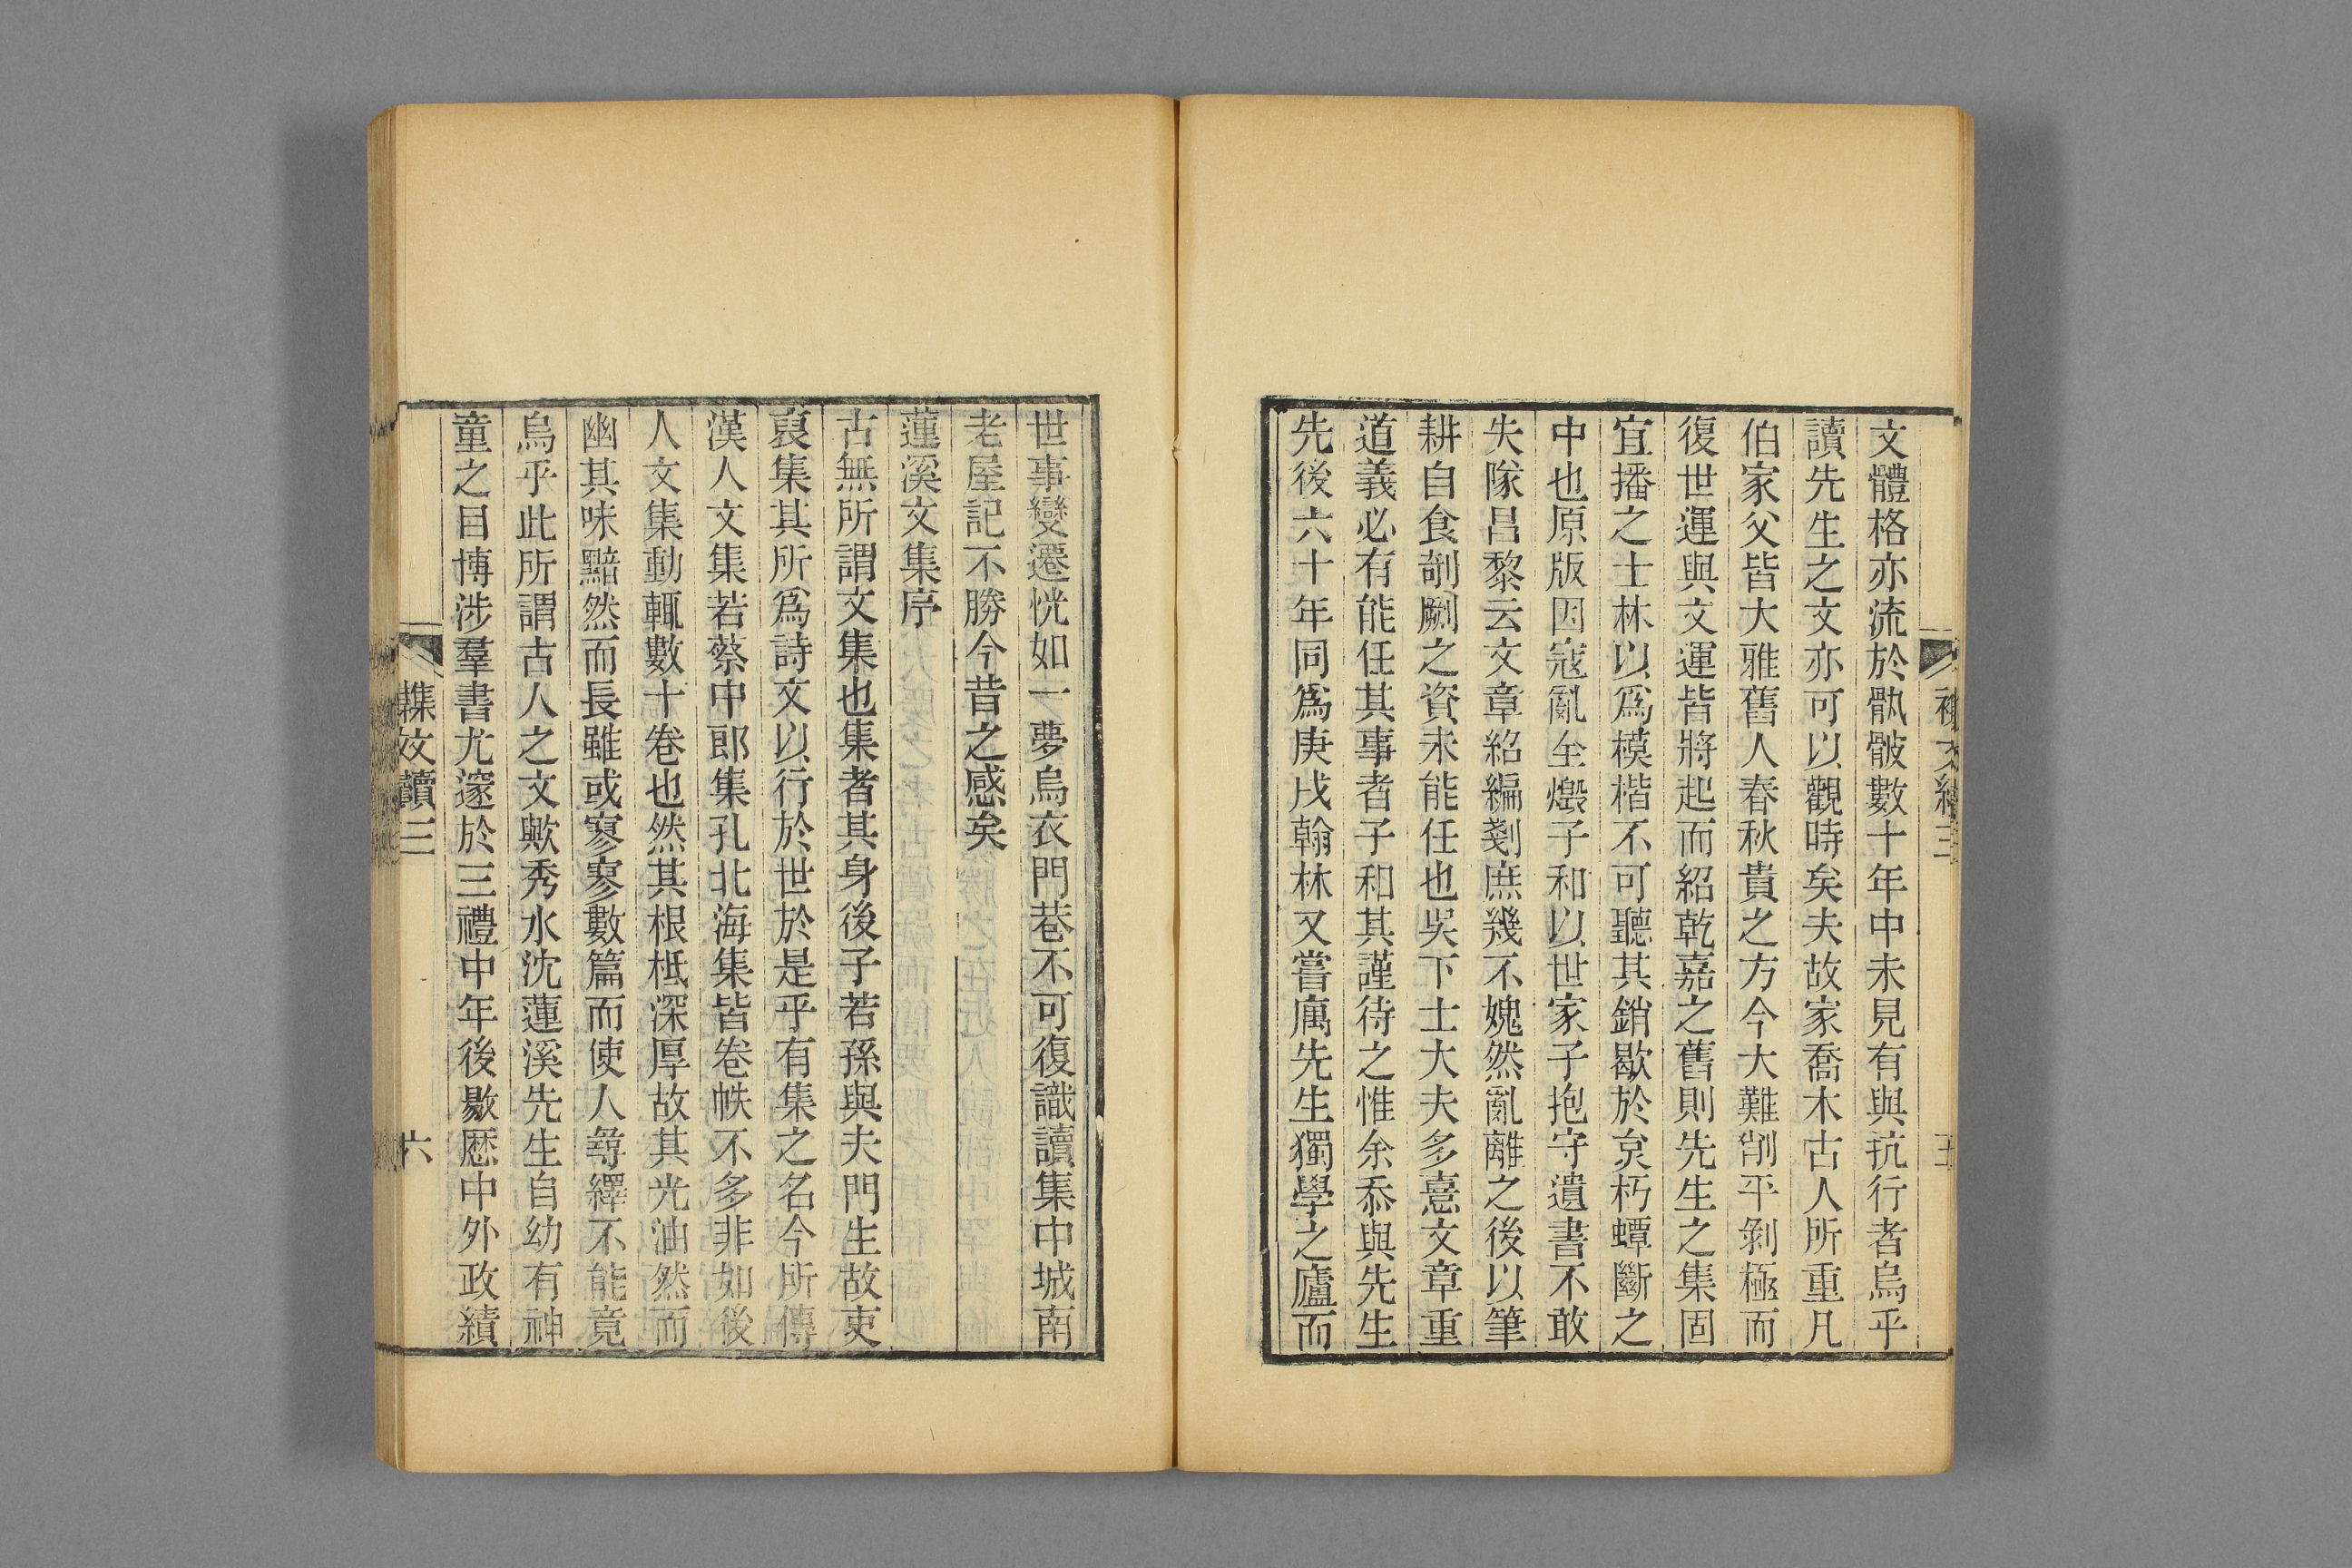 文體格亦流於骫骳數十年中未見有與抗行者烏乎
讀先生之文亦可以觀時矣夫故家喬木古人所重凡
伯家父皆大雅舊人春秋貴之方今大難削平剝極而
復世運與文運皆將起而紹乾嘉之舊則先生之集固
宜播之士林以爲模楷不可聽其銷歇於炱朽蟫斷之
中也原版因寇亂全燬子和以世家子抱守遺書不敢
失隊昌黎云文章紹編剗庶幾不媿然亂離之後以筆
耕自食剞劂之資未能任也吳下士大夫多憙文章重
道義必有能任其事者子和其謹待之惟余忝與先生
先後六十年同爲庚戌翰林又嘗庽先生獨學之廬而
世事變遷恍如一夢烏衣門巷不可復識讀集中城南
老屋記不勝今昔之感矣
蓮溪文集序
古無所謂文集也集者其身後子若孫與夫門生故吏
裒集其所爲詩文以行於世於是乎有集之名今所傳
漢人文集若蔡中郎集孔北海集皆卷帙不多非如後
人文集動輒數十卷也然其根柢深厚故其光油然而
幽其味黯然而長雖或寥寥數篇而使人尋繹不能竟
烏乎此所謂古人之文歟秀水沈蓮溪先生自幼有神
童之目博涉羣書尤邃於三禮中年後敭歷中外政績
文續三
六